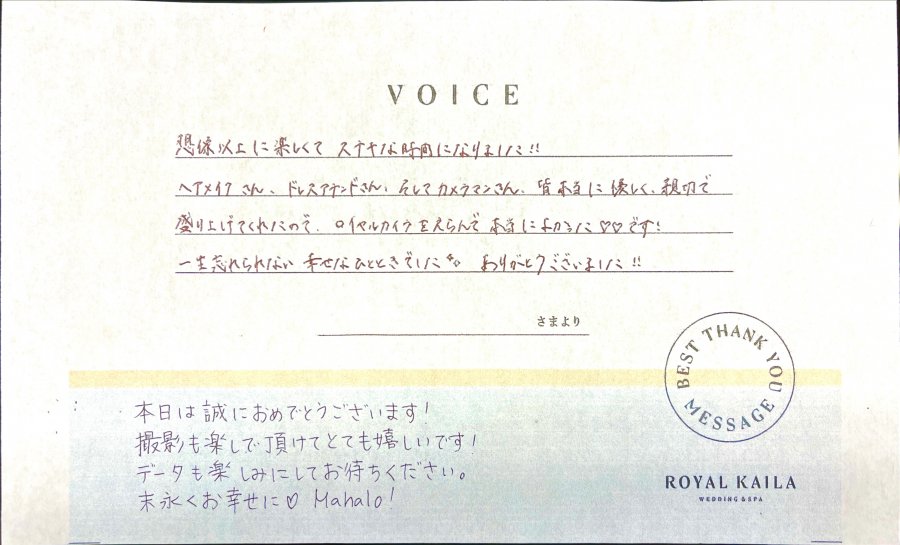 VOICE
想像以上に楽しくて ステキな時間になりました!!
ヘアメイクさん、ドレスアテンドさん、そしてカメラマンさん、皆本当に優しく、親切で
盛り上げてくれたので、ロイヤルカイラをえらんで本当によかった♡♡です!
一生忘れられない 幸せなひとときでした ありがとうございました!!
さまより
BEST THANK YOU MESSAGE
本日は誠におめでとうございます!
撮影も楽しで頂けてとても嬉しいです!
データも楽しみにしてお待ちください。
末永くお幸せに♡ Mahalo!
ROYAL KAILA
WEDDING & SPA